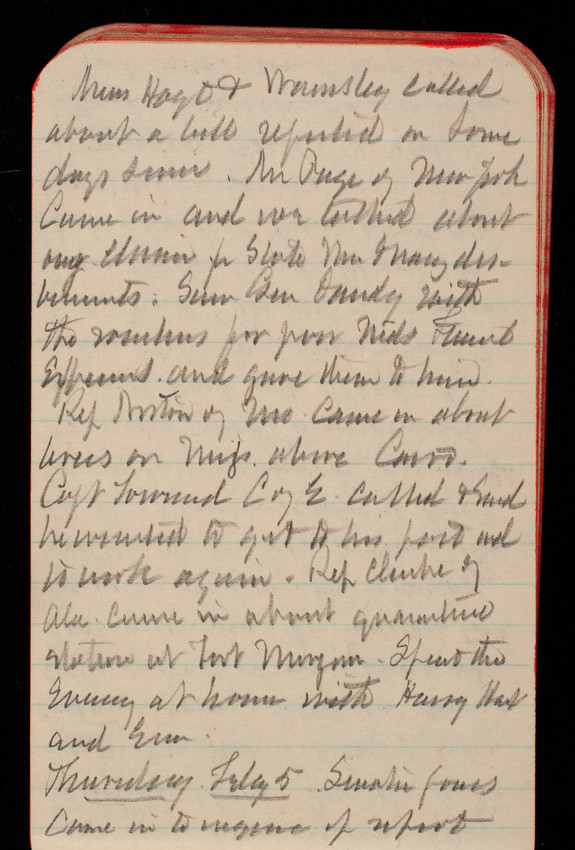 Hoyt & Wamsley called
about a bill reported on some
days since. Mr Page of New York
Came in and we talked about
claim for State
. Saw Gen with
the vouchers for
Expenses. and gave them to him.
Rep Norton of Mo. came in about
levees on Miss. above Cairo.
Capt Townsend C of E. called & said
he wanted to get to his post and
to work again. Rep Clarke of
Ala. came in about quarantine
station at Fort Morgan. Spent the
Evening at home with Harry
and Em.
Thursday Feby 5. Senator Jones
Came in to inquire if report